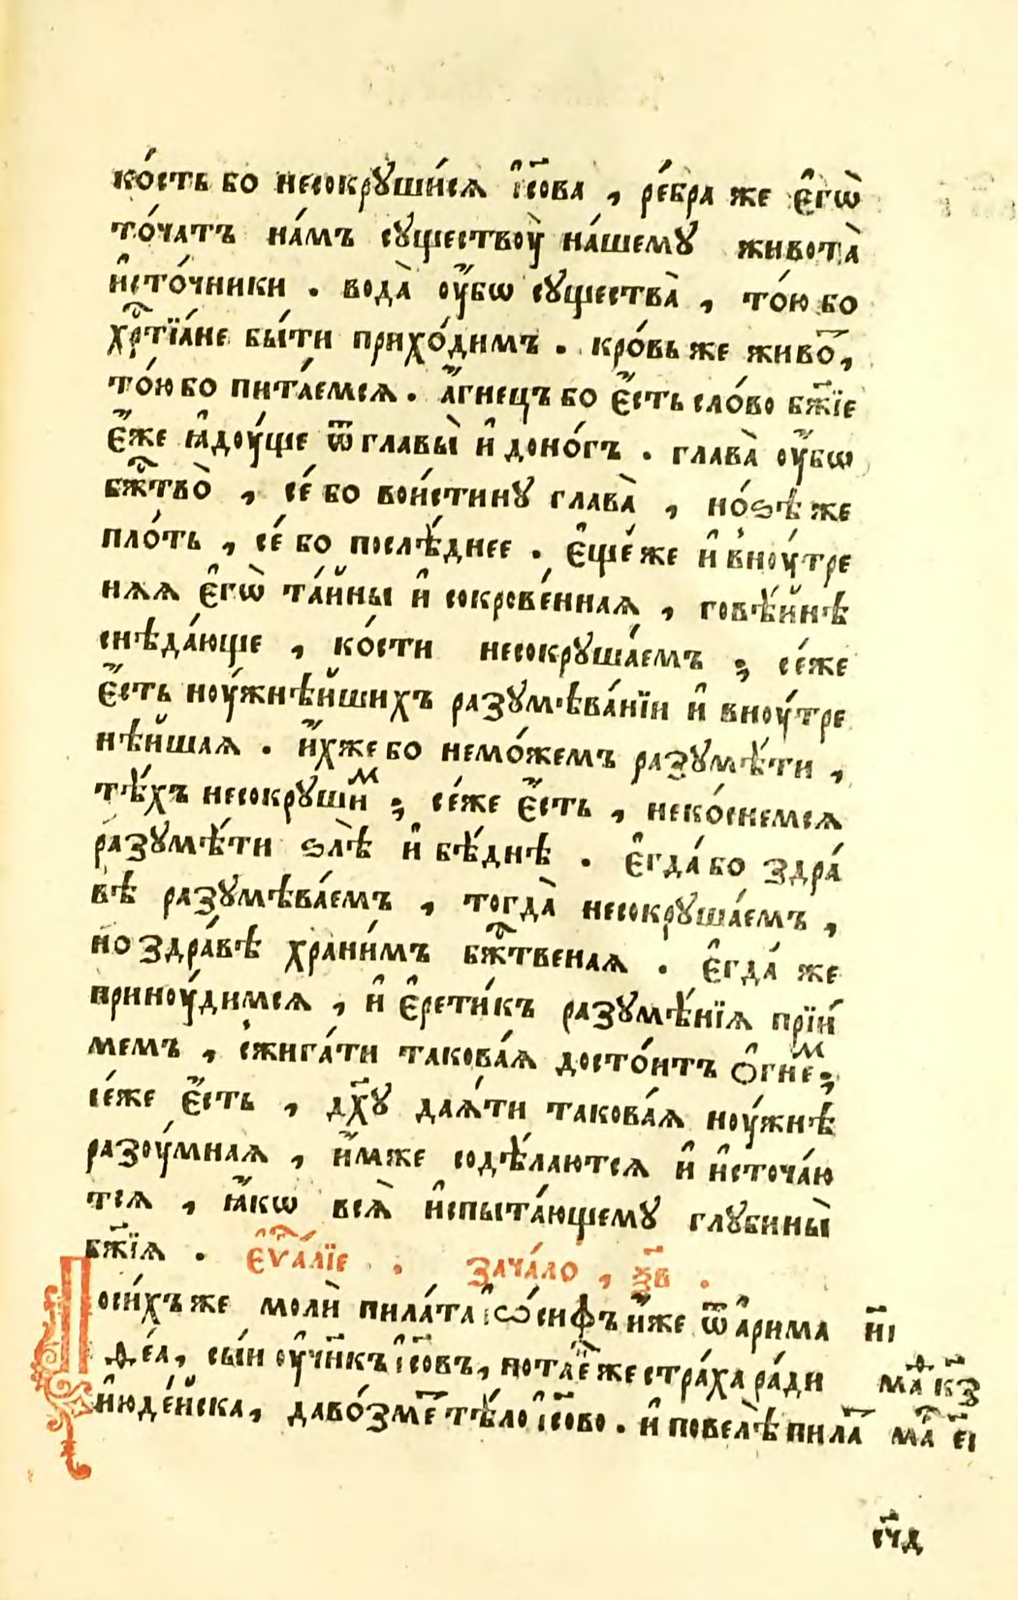 ко́сть бо несокруши́сѧ і҆с҃ова , ре́бра же є҆гѡ̀
то́чатъ на́мъ существоу̀ на́шему живота̀
и҆сто́чники . вода̀ оу҆́бѡ существа̀ , то́ю бо
хр҃тїа́не бы́ти прихо́димъ . кро́вь же живо҃ ,
то́ю бо пита́емсѧ . а҆́гнецъ бо є҆́сть сло́во бж҃їе
є҆́же ꙗ҆доу́ще ѿ главы̀ и҆ доно́гъ . глава̀ оу҆́бѡ
бж҃тво̀ , се́ бо вои́стину глава̀ , но́ѕѣ же
пло́ть , се́ бо послѣ́днее . є҆ще́ же и҆ вноу́тре
нѧѧ є҆гѡ̀ та́йны и҆ сокрове́ннаѧ , говѣ́йнѣ
снѣда́юще , ко́сти несокруша́емъ ; се́же
є҆́сть ноу́жнѣйшихъ разумѣва́нїи и҆ вноу́тре
нѣ́йшаѧ . и҆́хже бо немо́жемъ разумѣ́ти ,
тѣ́хъ несокруши́м ; се́же є҆́сть , неко́снемсѧ
разумѣ́ти ѕлѣ̀ и҆ бѣ́днѣ . є҆гда́ бо здра́
вѣ разумѣва́емъ , тогда̀ несокруша́емъ ,
но здра́вѣ храни́мъ бж҃твенаѧ . є҆гда́ же
приноу́димсѧ , и҆ є҆рети́къ разумѣ́нїѧ прїи́
мемъ , сжига́ти такова́ѧ досто́итъ ѻ҆гне́м ;
се́же є҆́сть , дх҃у даѧ́ти такова́ѧ ноу́жнѣ
разоу́мнаѧ , и҆́маже содѣ́лаютсѧ и҆ и҆сточа́ю
тсѧ , ꙗ҆́кѡ всѧ̀ и҆спыта́ющему глубины̀
бж҃їѧ . є҆ѵ҃а́лїе . зача́ло , ѯ҃в .
Поси́хъ же молѝ пила́та і҆ѡ́сифъ и҆́же ѿ а҆рима н҃і
ѳе́а , сы́и оу҆ч҃нкъ і҆с҃овъ , потае҆́ же стра́ха ра́ди маѳ к҃з
и҆юде́йска , даво́зме҃ тѣ́ло і҆с҃ово . и҆ повелѣ̀ пила҃ ма҃ є҃і
сч҃д